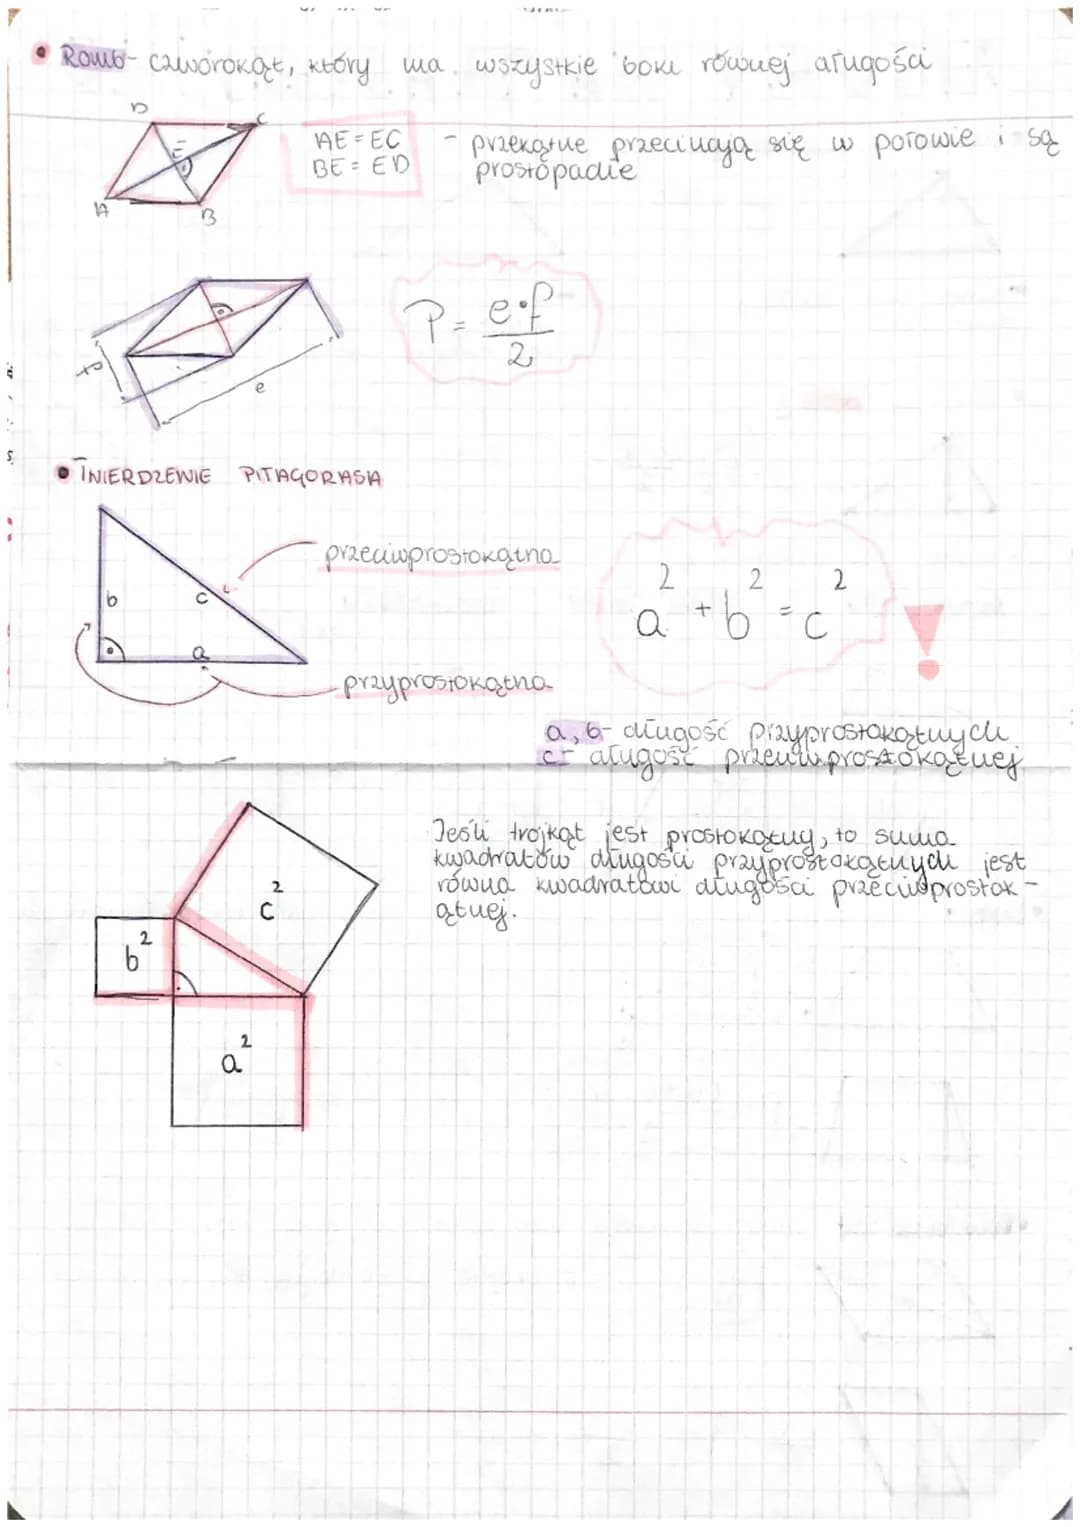 Romb - czworokąt, który ma wszystkie boki równej długości
D
C
E
A
B
AE = EC
BE = ED
- przekątne przecinają się w połowie i są
prostopadłe
f
e
P = e·f
2
TWIERDZENIE PITAGORASA
przeciwprostokątna
b
c
a
przyprostokątna
a² + b² = c²
a, b - długość przyprostokątnych
c - długość przeciwprostokątnej
Jeśli trójkąt jest prostokątny, to suma
kwadratów długości przyprostokątnych jest
równa kwadratowi długości przeciwprostok-
ątnej.
c²
b²
a²